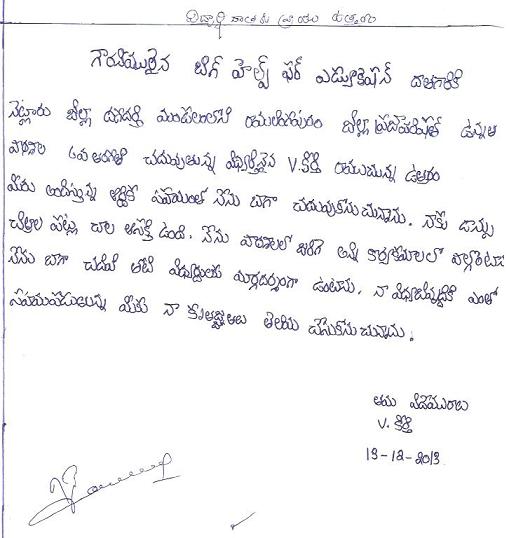 విద్యార్థి దాతకు వ్రాయు ఉత్తరం
గౌరవనీయులైన బిగ్ హెల్ప్ ఫర్ ఎడ్యుకేషన్ దాతగారికి
నెల్లూరు జిల్లా దగదర్తి మండలంలోని రామలింగపురం జిల్లా ప్రజాపరిషత్ ఉన్నత
పాఠశాల 6వ తరగతి చదువుతున్న విద్యార్థినైన V.కీర్తి రాయుచున్న ఉత్తరం
మీరు అందిస్తున్న ఆర్థిక సహాయంతో నేను బాగా చదువుకొనుచున్నాను. నాకు బొమ్మ
చిత్రాల పట్ల చాల ఆసక్తి ఉంది. నేను పాఠశాలలో జరిగే అన్ని కార్యక్రమాలలో పాల్గొంటాను
నేను బాగా చదివి తోటి విద్యార్థులకు మార్గదర్శంగా ఉంటాను. నా విద్యాభివృద్ధికి ఎంతో
సహాయపడుతున్న మీకు నా కృతజ్ఞతలు తెలియ చేసుకొనుచున్నాను.
తమ విధేయురాలు
V. కీర్తి
13-12-2013